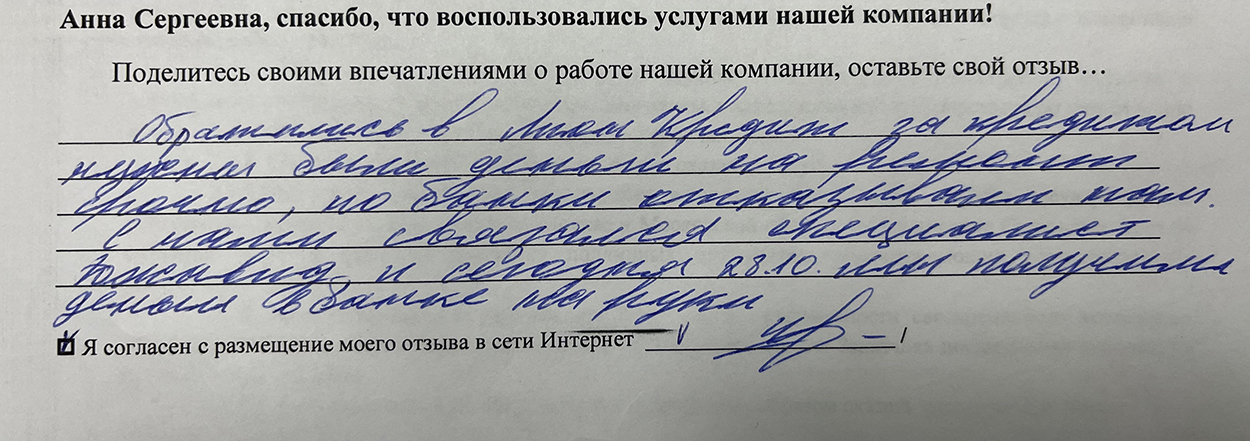 Анна Сергеевна, спасибо, что воспользовались услугами нашей компании!
Поделитесь своими впечатлениями о работе нашей компании, оставьте свой отзыв…
Обратились в Кредит за кредитом
нужны были деньги на ремонт
срочно, но банки отказывали нам.
С нами связался специалист
и сегодня 28.10. мы получили
деньги в банке на руки
Я согласен с размещение моего отзыва в сети Интернет /